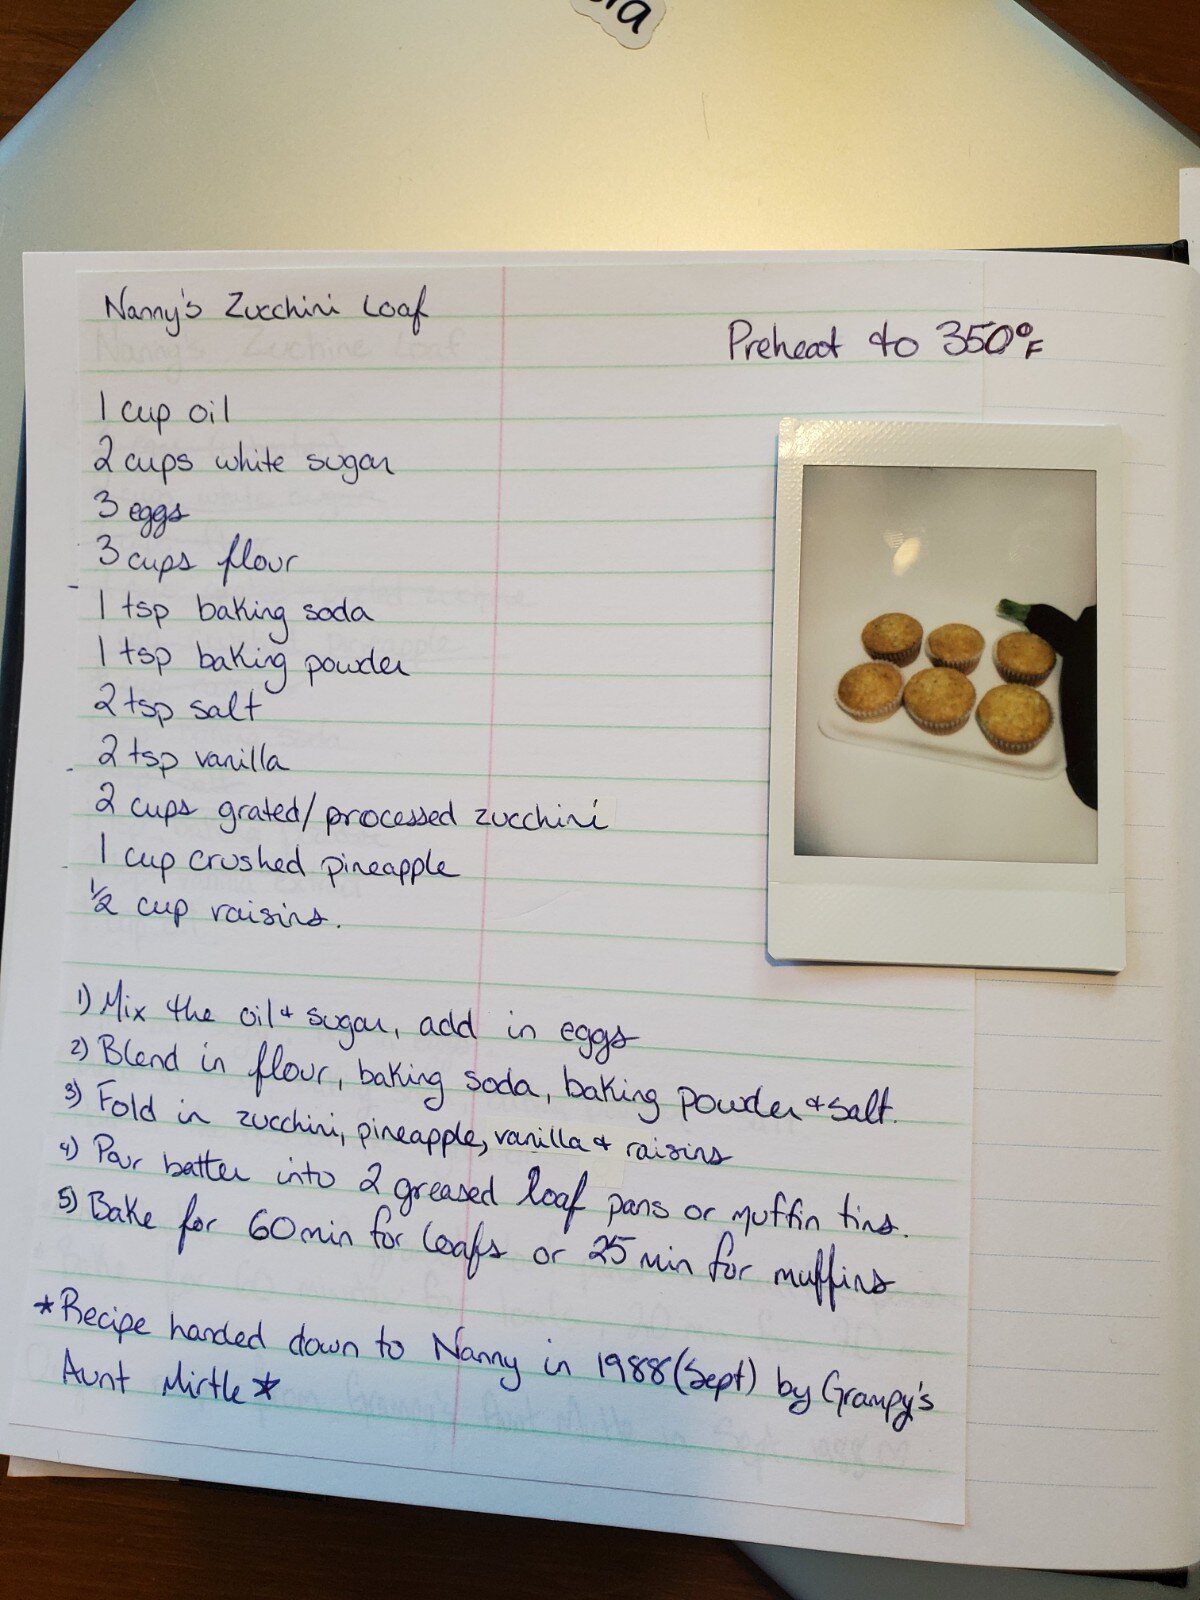 Nanny's Zucchini Loaf
Preheat to 350°F
1 cup oil
2 cups white sugar
3 eggs
3 cups flour
1 tsp baking soda
1 tsp baking powder
2 tsp salt
2 tsp vanilla
2 cups grated/processed zucchini
1 cup crushed pineapple
1/2 cup raisins.
1) Mix the oil + sugar, add in eggs
2) Blend in flour, baking soda, baking powder + salt.
3) Fold in zucchini, pineapple, vanilla + raisins
4) Pour batter into 2 greased loaf pans or muffin tins.
5) Bake for 60 min for loafs or 25 min for muffins
*Recipe handed down to Nanny in 1988 (Sept) by Grampy's
Aunt Mirtle*